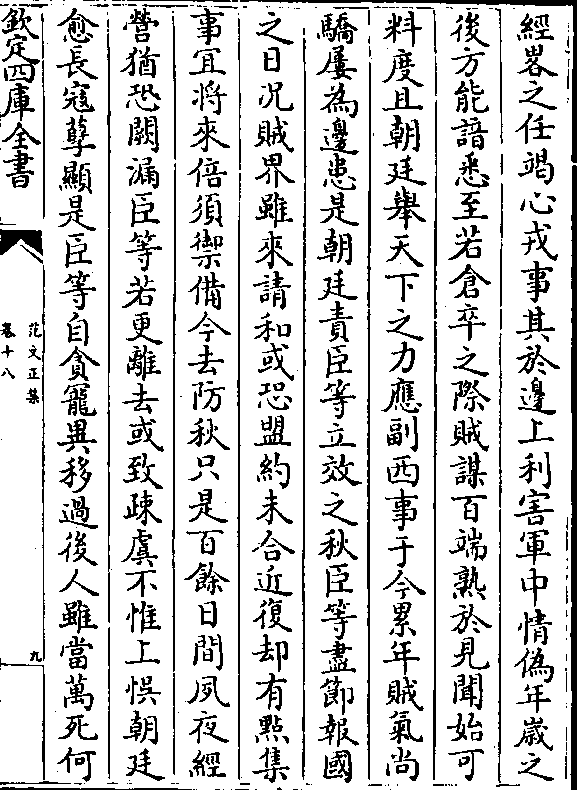 經畧之任竭心戎事其於邊上利害軍中情偽年嵗之
後方能諳悉至若倉卒之際賊謀百端熟於見聞始可
料度且朝廷舉天下之力應副西事于今累年賊氣尚
驕屢為邊患是朝廷責臣等立效之秋臣等盡節報國
之日况賊界雖來請和或恐盟約未合近復却有㸃集
事宜將來倍須禦備今去防秋只是百餘日間夙夜經
營猶恐闕漏臣等若更離去或致疎虞不惟上悞朝廷
愈長寇孽顯是臣等自貪寵異移過後人雖當萬死何
欽定四庫全書
范文正集
卷十八
九